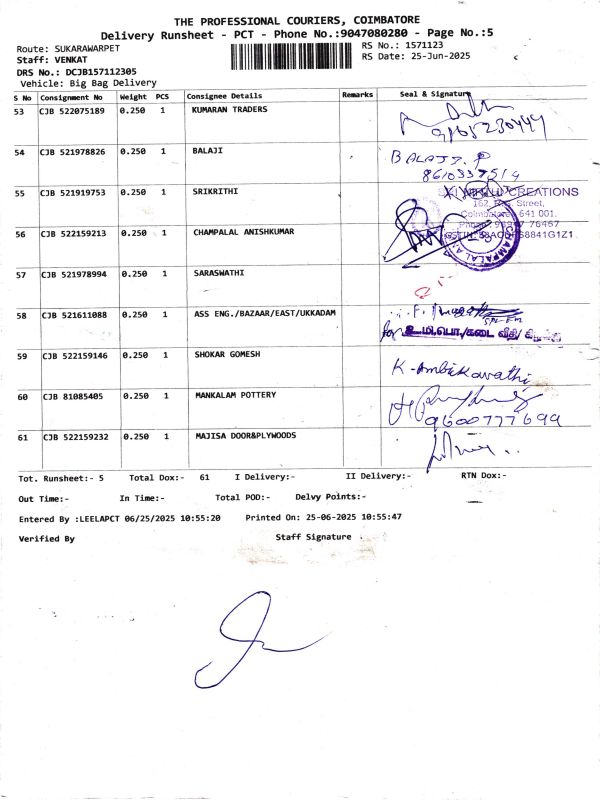 THE PROFESSIONAL COURIERS, COIMBATORE
Delivery Runsheet - PCT - Phone No.:9047080280 - Page No.:5
Route: SUKARAWARPET
RS No.: 1571123
Staff: VENKAT
RS Date: 25-Jun-2025
DRS No.: DCJB157112305
Vehicle: Big Bag Delivery
S No Consignment No Weight PCS Consignee Details Remarks Seal & Signature
53 CJB 522075189 0.250 1 KUMARAN TRADERS
54 CJB 521978826 0.250 1 BALAJI BALAJI. P
8610337514
55 CJB 521919753 0.250 1 SRIKRITHI CREATIONS
Street,
Coimbatore 641 001.
56 CJB 522159213 0.250 1 CHAMPALAL ANISHKUMAR
57 CJB 521978994 0.250 1 SARASWATHI
58 CJB 521611088 0.250 1 ASS ENG./BAZAAR/EAST/UKKADAM
for
59 CJB 522159146 0.250 1 SHOKAR GOMESH K-Ambikavathi
60 CJB 81085405 0.250 1 MANKALAM POTTERY
9600777699
61 CJB 522159232 0.250 1 MAJISA DOOR&PLYWOODS
Tot. Runsheet:- 5 Total Dox:- 61 I Delivery:- II Delivery:- RTN Dox:-
Out Time:- In Time:- Total POD:- Delvy Points:-
Entered By :LEELAPCT 06/25/2025 10:55:20 Printed On: 25-06-2025 10:55:47
Verified By Staff Signature